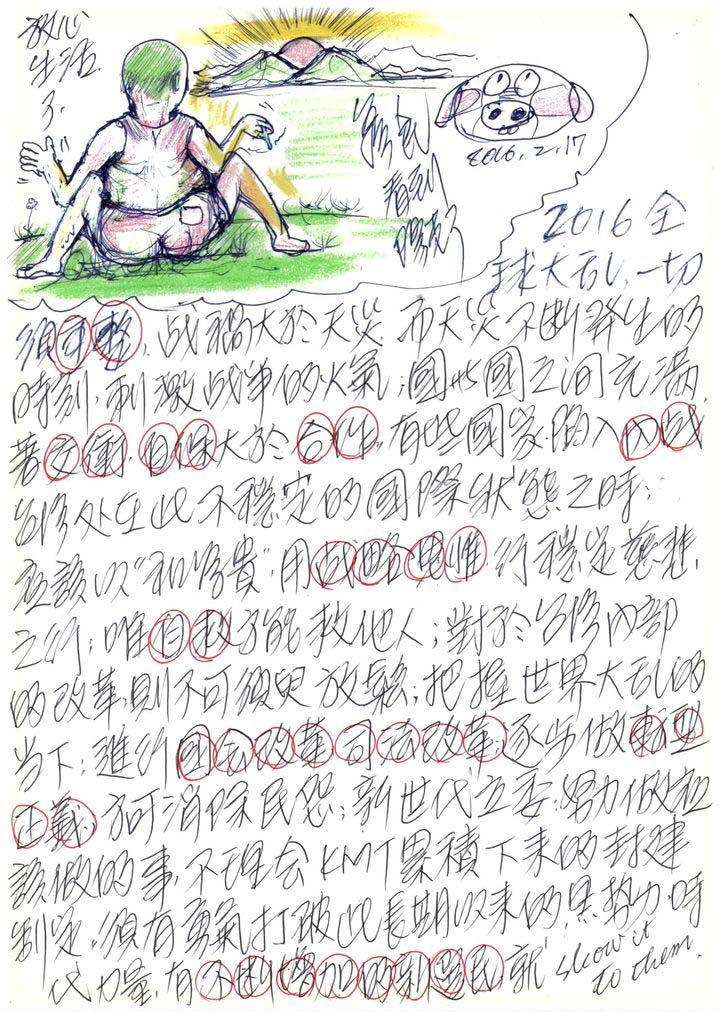 放心
生活
了.
看到
2016.2.17
2016全
球大乱、一切
須重整。战禍大於天災 而天災不断発生的
時刻,刺激战争的火氣;國與國之间充滿
著交衝.自保大於合作。有些國家陷入內战
台灣处在此不穩定的國際状態之時;
应該以"和為貴"用战略思惟.行穩定慈悲
之行;唯自救才能救他人;對於台灣內部
的改革則不可須臾放鬆;把握世界大乱的
当下;進行國会改革司法改革,逐步做轉型
正義;方可消除民怨;新世代立委.努力做应
該做的事.不理会KMT累積下来的封建
制定.須有勇氣打破此長期以来的黑勢力.時
代力量.有不断增加的新選民就show it
to them.